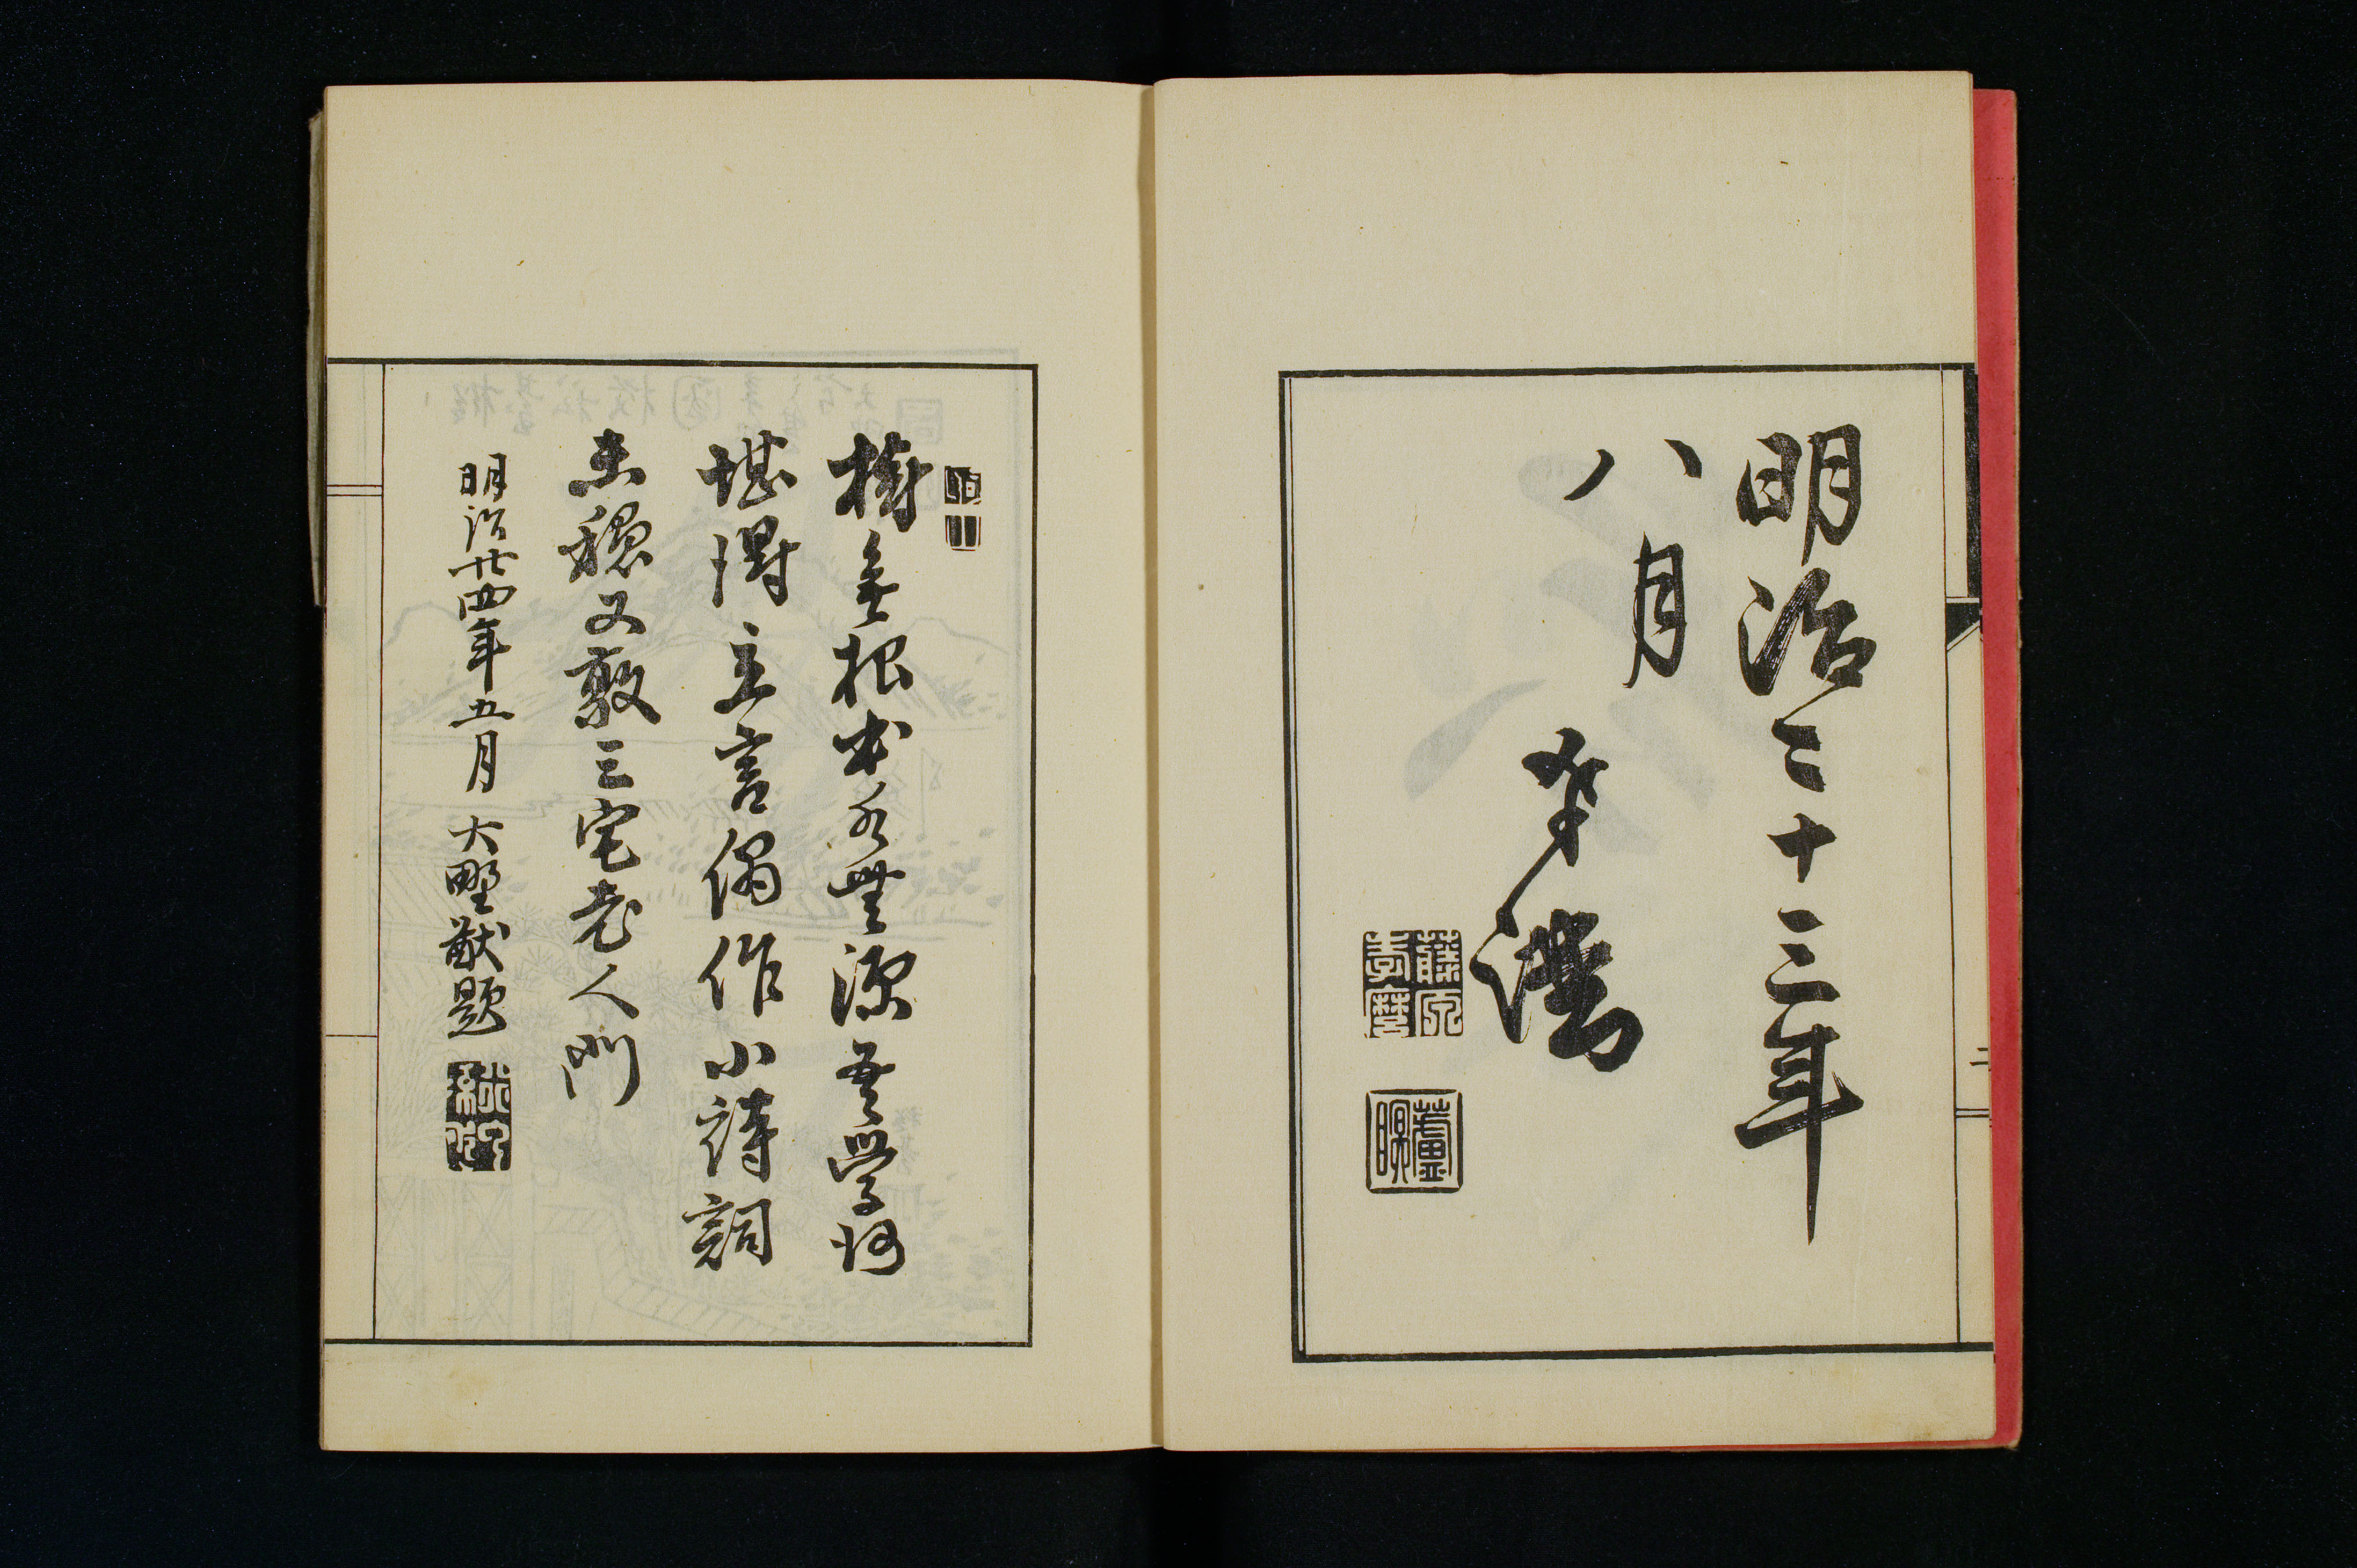 明治二十三年
八月
二
樹無根本水無源吾學何
堪得立言偶作小詩詞
未穏又敲三宅老人門
明治廿四年五月 大野猷題